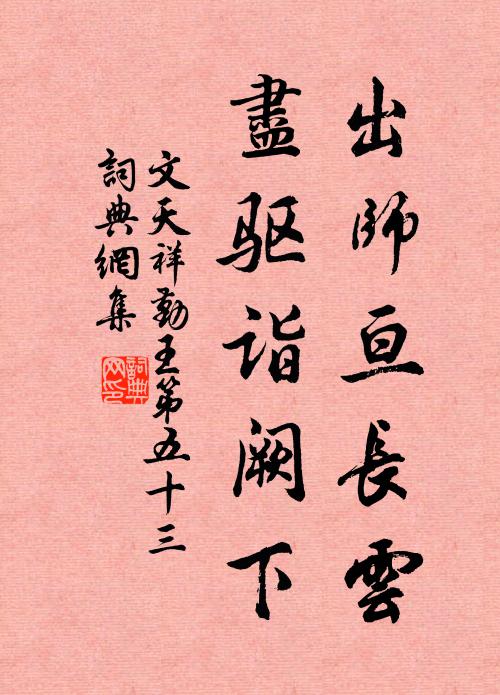 出師亘長雲
盡驱诣阙下
文天祥勤王第五十三
詞典網集
詞典
网印